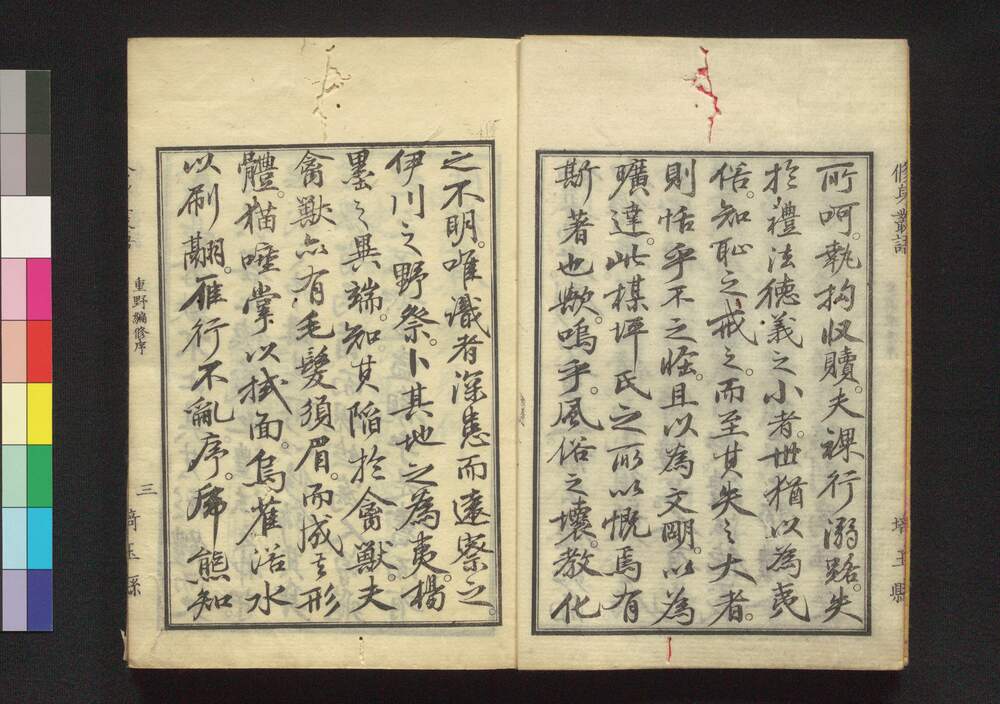 修身叢語
所呵。執拘収贖。夫裸行溺路。失
於禮法德義之小者。世猶以為夷
俗。知恥之戒之。而至其失之大者。
則恬乎不之怪。且以為文明。以為
曠達。此楳坪氏之所以慨焉有
斯著也歟。嗚乎。風俗之壞。教化
埼玉縣
之不明。唯識者深患而遠察之。
伊川之野祭。卜其地之為夷。楊
墨之異端。知其陥於禽獸。夫
禽獸亦有毛髮須眉。而成其形
體。猫唾掌以拭面。烏雀浴水
以刷翮。雁行不亂序。廌熊知
重野編修序
三
埼玉縣